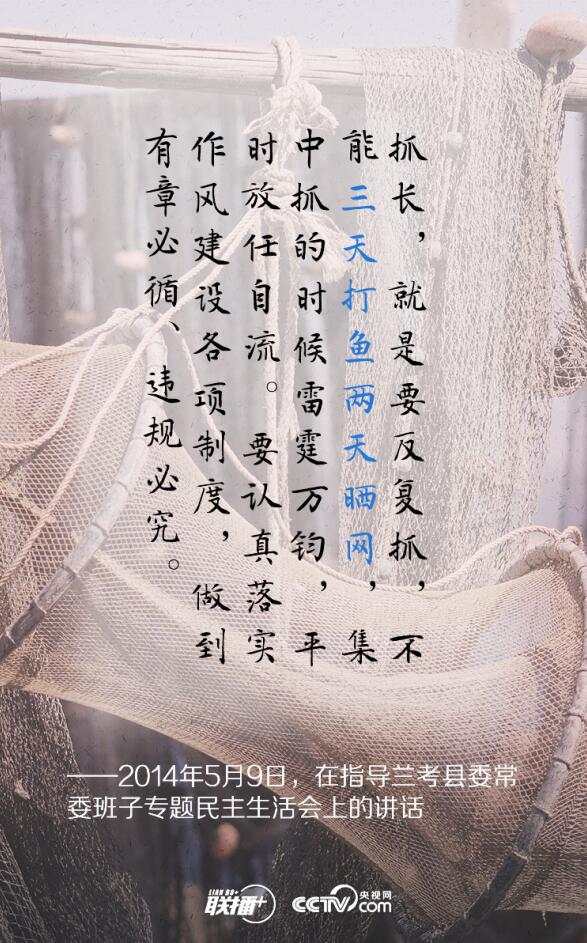 抓长，就是要反复抓，不
能三天打鱼两天晒网，集
中抓的时候雷霆万钧，平
时放任自流。要认真落实
作风建设各项制度，做到
有章必循、违规必究。
——2014年5月9日，在指导兰考县委常
委班子专题民主生活会上的讲话
LIAN BO+
联播+
CCTV.com
央视网